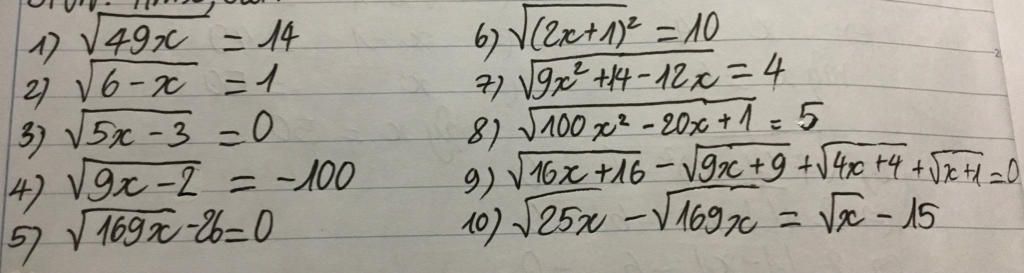 1) √49x = 14
2) √6 - x = 1
3) √5x - 3 = 0
4) √9x - 2 = -100
5) √169x - 26 = 0
6) √(2x+1)² = 10
7) √9x² + 14 - 12x = 4
8) √100x² - 20x + 1 = 5
9) √16x + 16 - √9x + 9 + √4x + 4 + √x + 1 = 0
10) √25x - √169x = √x - 15